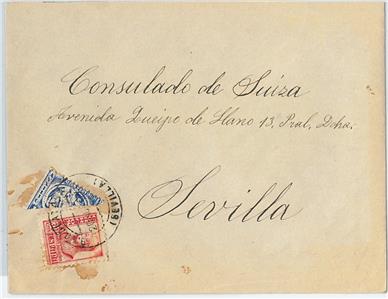 Consulado de Suiza
Avenida Queipo de Llano 13, Pral, Dcha.
Sevilla
SEVILLA